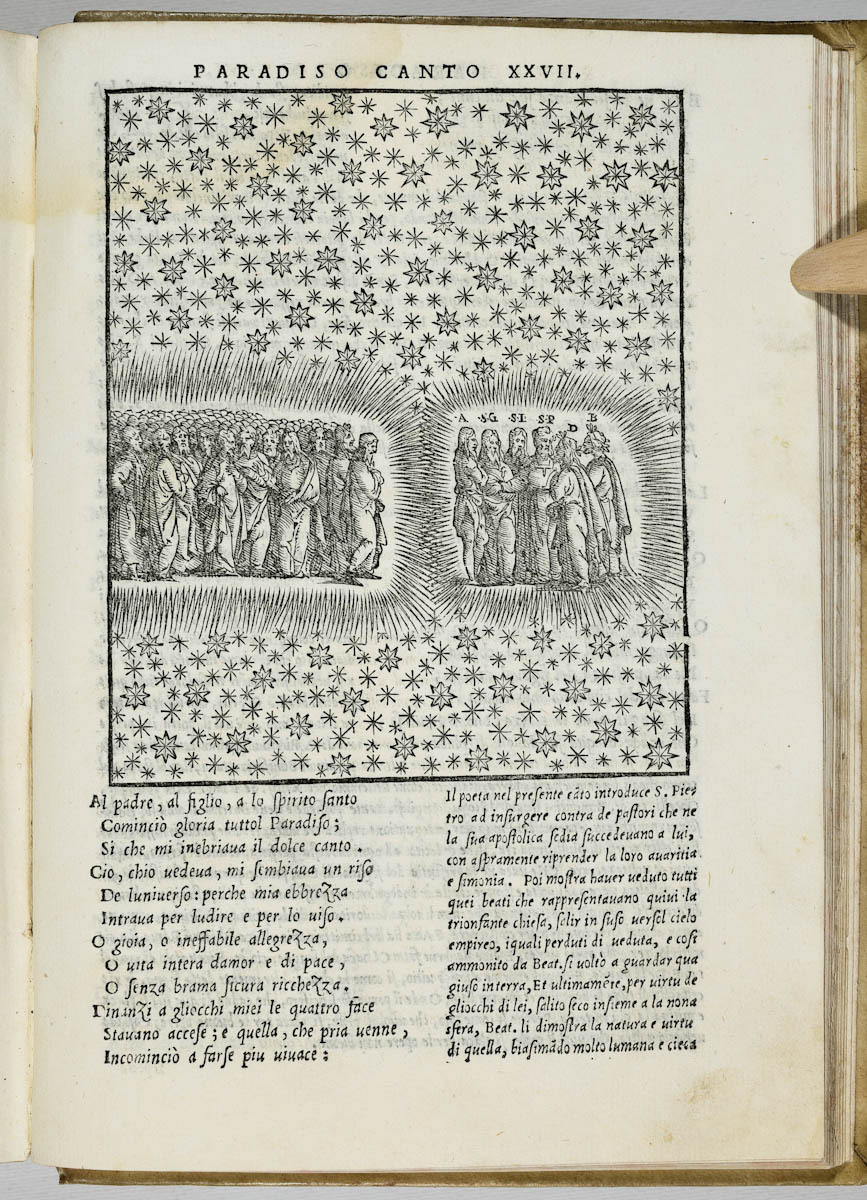 PARADISO CANTO XXVII.
·A· ·SG· ·S·I· S·P· D B
Al padre, al figlio, a lo spirito santo
Cominciò gloria tuttol Paradiso;
Si che mi inebriaua il dolce canto.
Cio, chio uedeua, mi sembiaua un riso
De luniuerso: perche mia ebbrezza
Intraua per ludire e per lo uiso.
O gioia, o ineffabile allegrezza,
O uita intera damor e di pace,
O senza brama sicura ricchezza.
Dinanzi a gliocchi miei le quattro face
Stauano accese; e quella, che pria uenne,
Incominciò a farse piu uiuace:
Il poeta nel presente cāto introduce S. Pie-
tro ad insurgere contra de pastori che ne
la sua apostolica sedia succedeuano a lui,
con aspramente riprender la loro auaritia
e simonia. Poi mostra hauer ueduto tutti
quei beati che rappresentauano quiui la
trionfante chiesa, salir in suso uersol cielo
empireo, iquali perduti di ueduta, e cosi
ammonito da Beat. si uoltò a guardar qua
giuso in terra, Et ultimamēte, per uirtu de
gliocchi di lei, salito seco insieme a la nona
sfera, Beat. li dimostra la natura e uirtu
di quella, biasimādo molto lumana e cieca